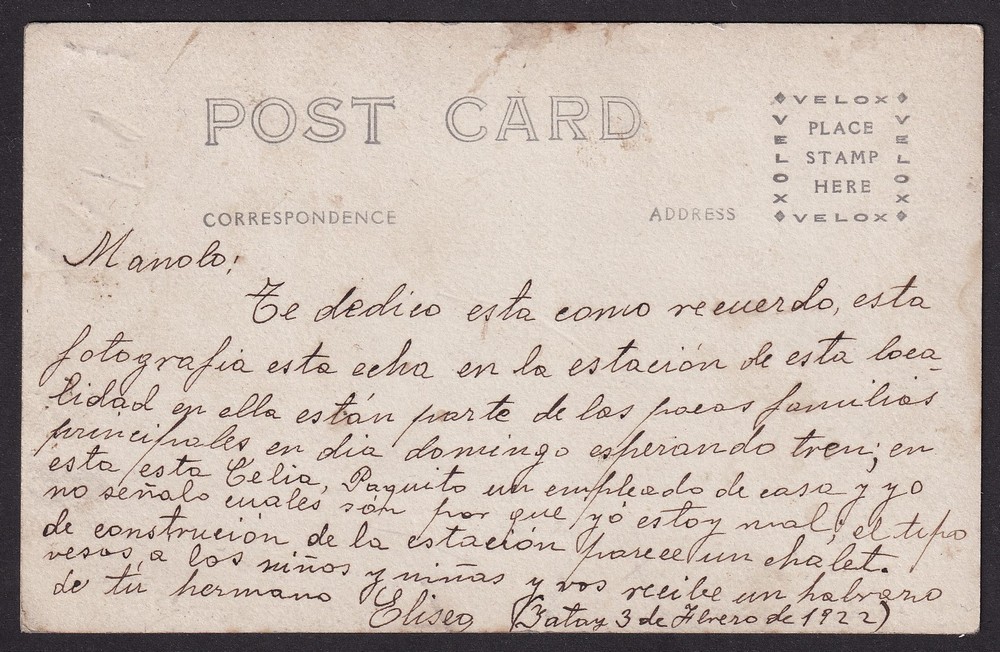 POST CARD
VELOX
VELOX
VELOX
VELOX
PLACE
STAMP
HERE
CORRESPONDENCE
ADDRESS
Manolo;
Te dedico esta como recuerdo, esta
fotografia esta echa en la estación de esta loca-
lidad en ella están parte de las pocas familias
principales en dia domingo esperando tren; en
esta esta Celia, Paquito un empleado de casa y yo
no señalo cuales són por que yó estoy mal; el tipo
de construción de la estación parece un chalet.
vesos, a los niños y niñas y vos recibe un habrazo
de tú hermano Eliseo (Batay 3 de Febrero de 1922)